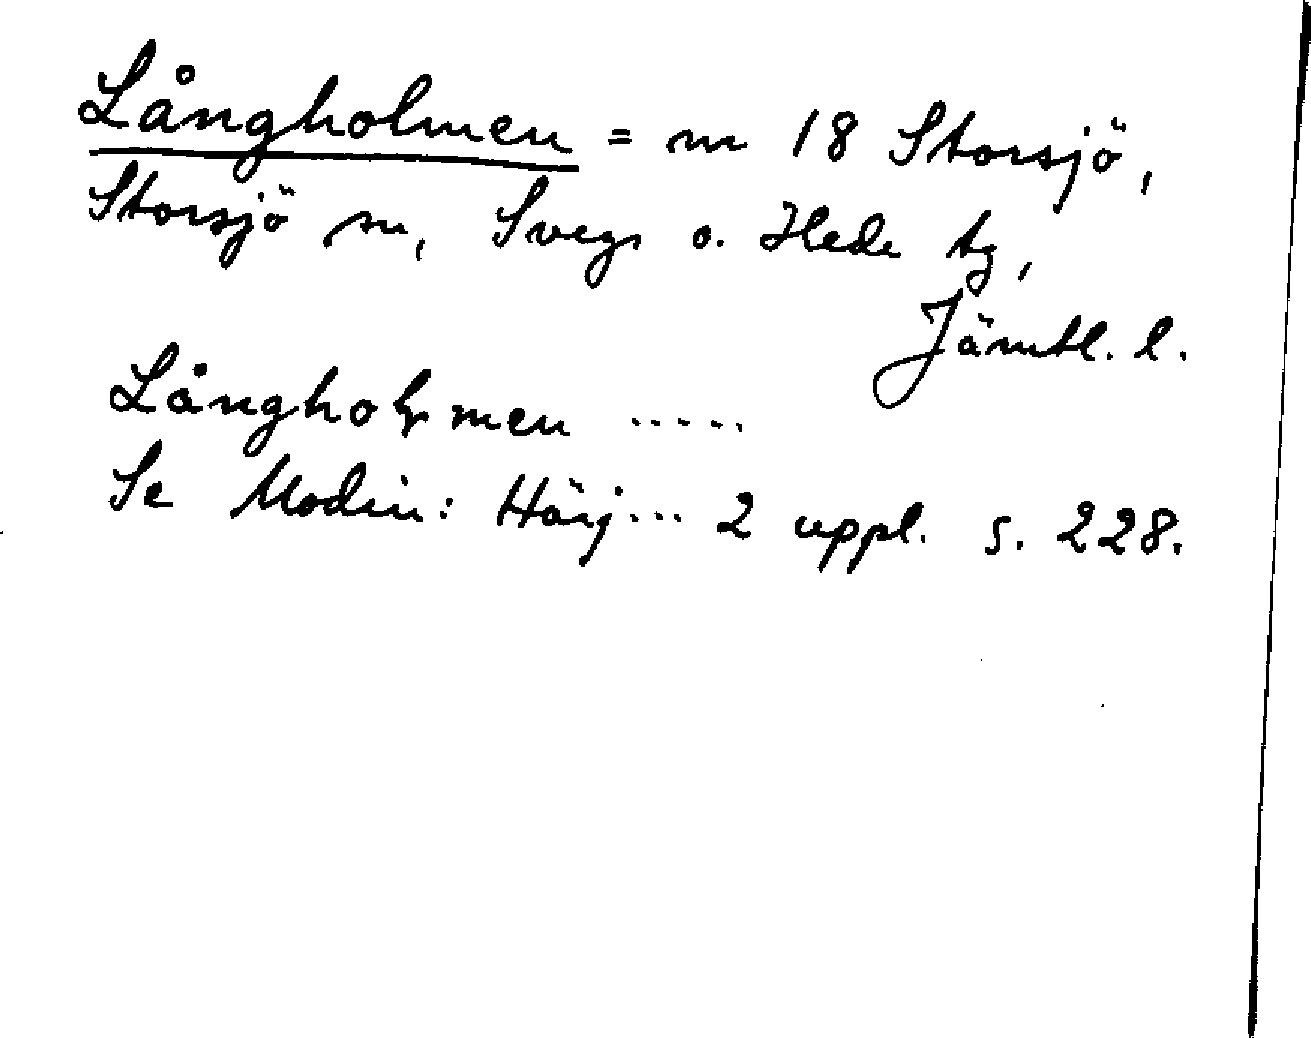 Långholmen = nr 18 Storsjö,
Storsjö sn, Svegs o. Hede tg,
Jämtl. l.
Långholmen .....
Se Modin: Härj... 2 uppl. s. 228.